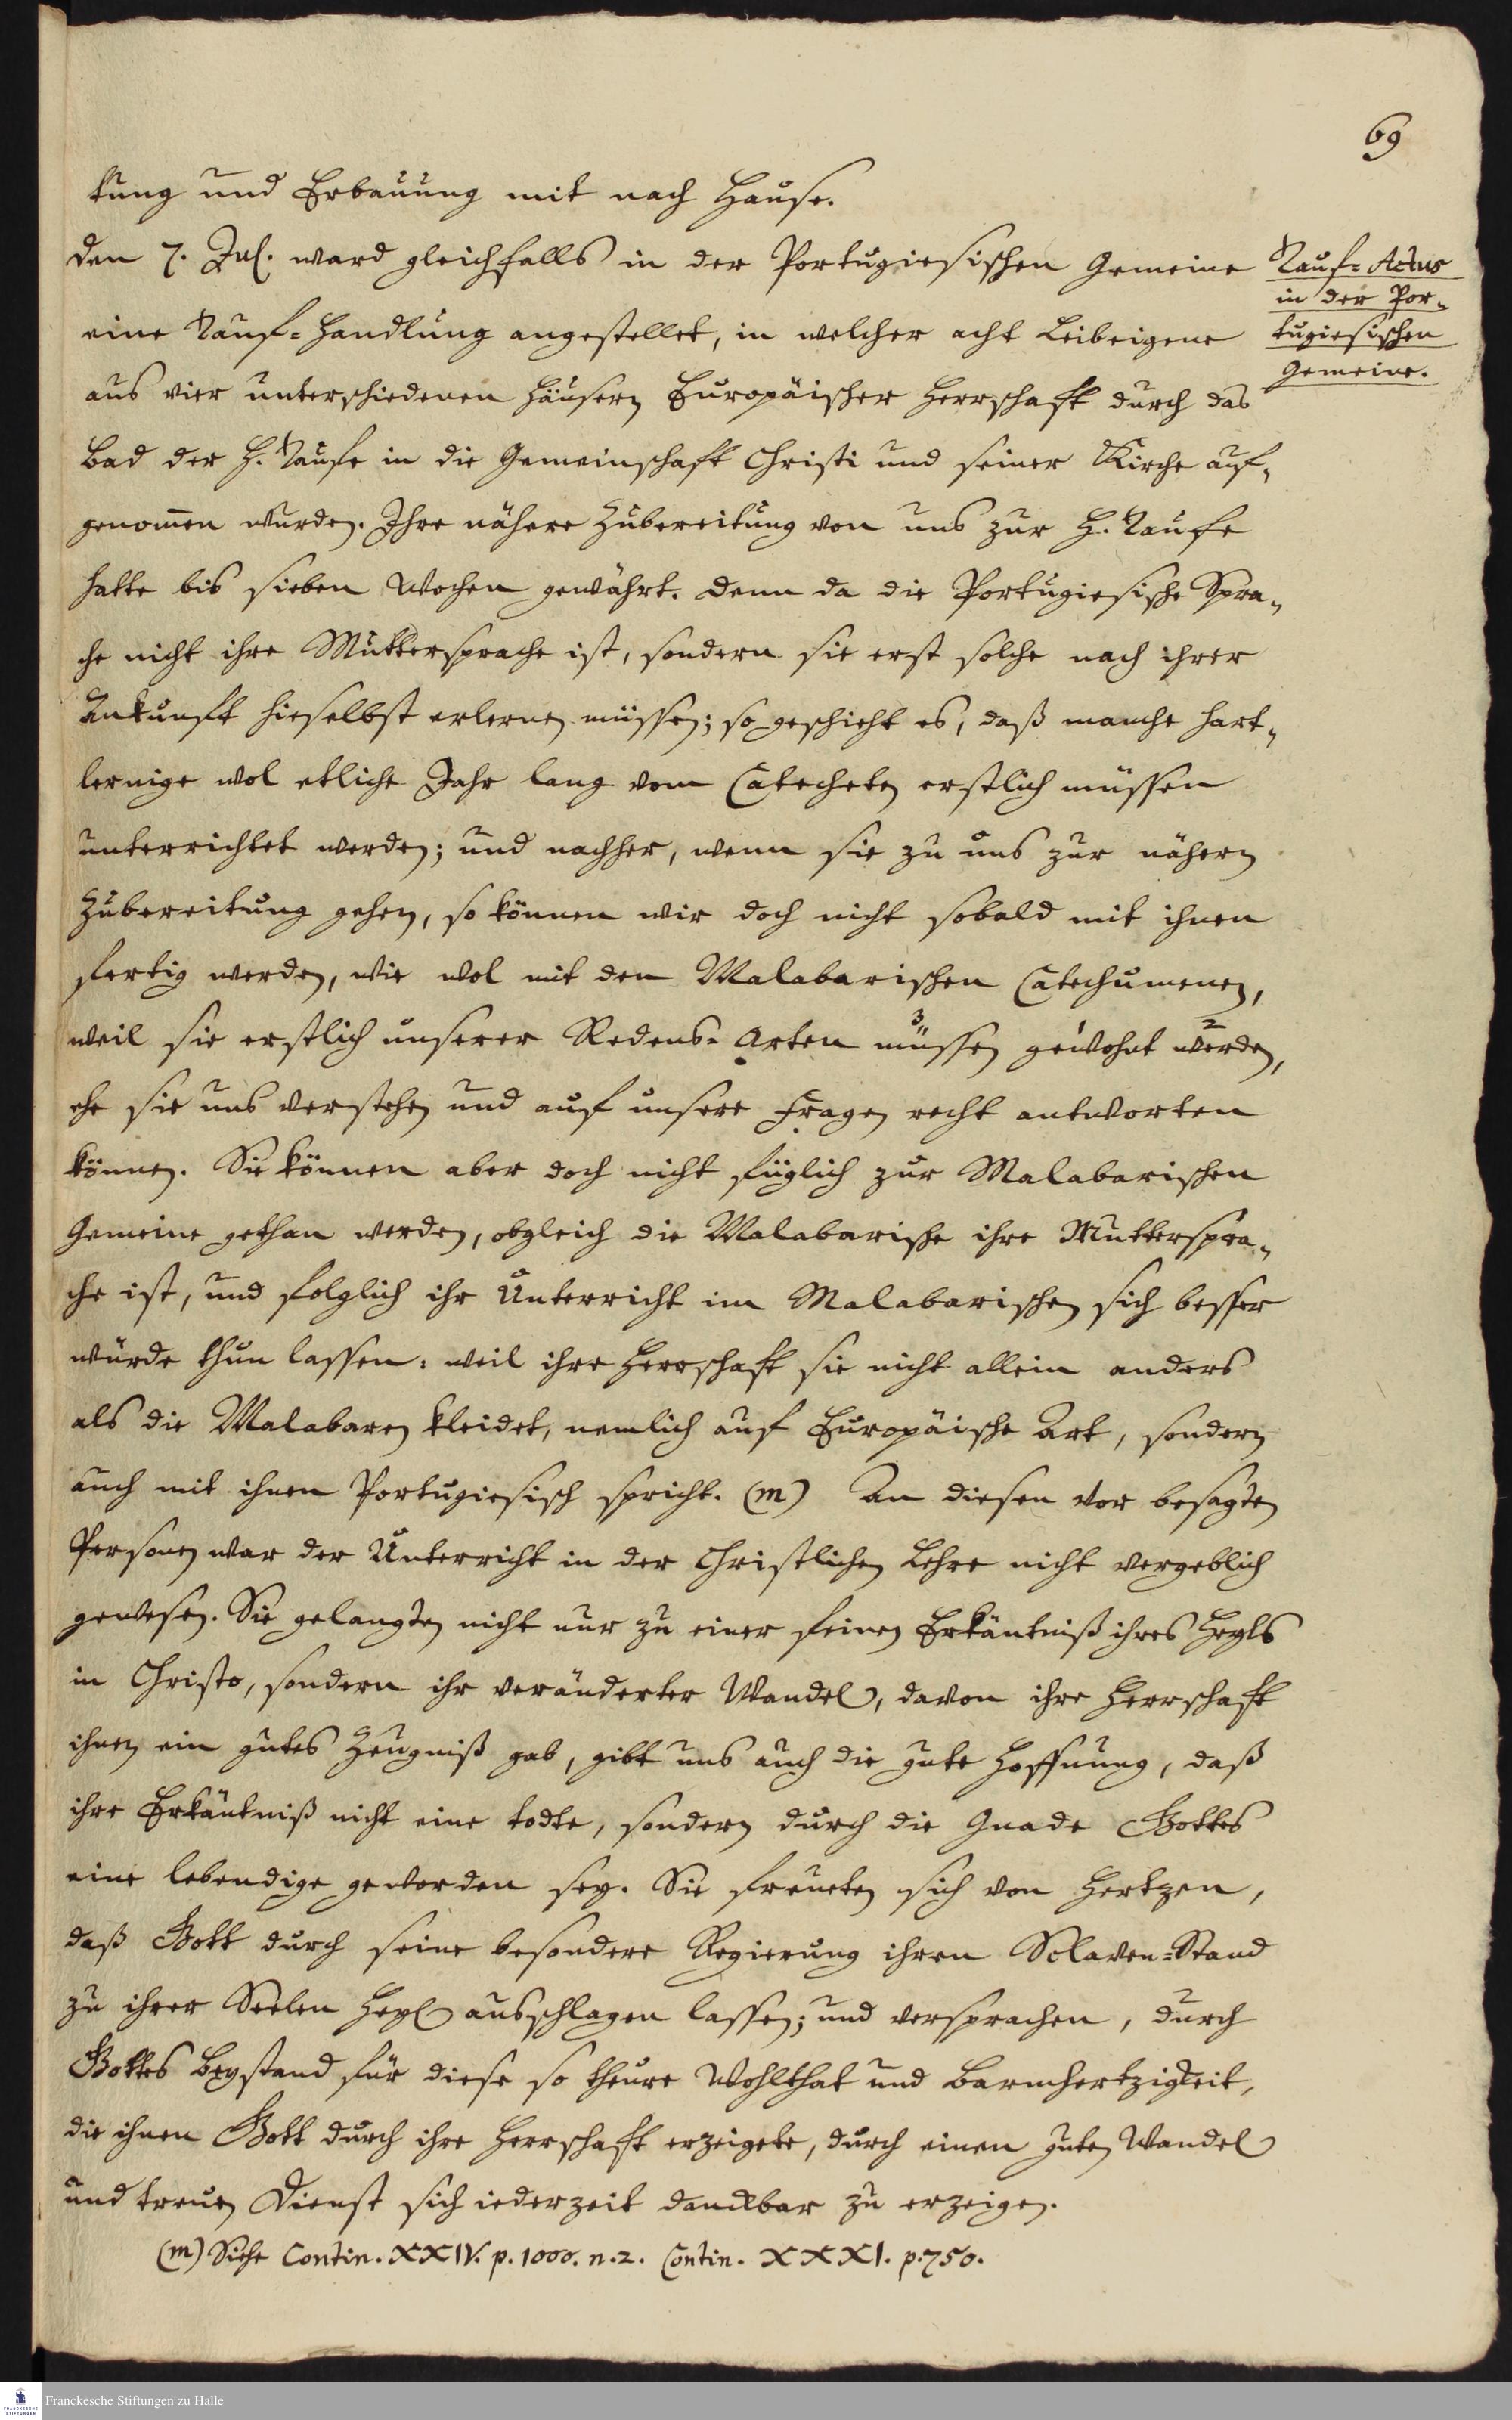 69
tung und Erbauung mit nach Hause.
den 7. Jul. ward gleichfalls in der Portugiesischen Gemeine
Tauf=Actus
in der Por-
tugiesischen
Gemeine.
eine Tauf=Handlung angestellet, in welcher acht Leibeigene
aus vier unterschiedenen Häusern Europäischer Herrschaft durch das
Bad der H. Taufe in die Gemeinschaft Christi und seiner Kirche auf-
genom̄en wurden. Ihre nähere Zubereitung von uns zur H. Taufe
hatte bis sieben Wochen gewährt. Denn da die Portugiesische Spra-
che nicht ihre Muttersprache ist, sondern sie erst solche nach ihrer
Ankunft hieselbst erlernen müssen; so geschicht es, daß manche hart-
lernige wol etliche Jahr lang vom Catecheten erstlich müssen
unterrichtet werden; und nachher, wenn sie zu uns zur nähern
Zubereitung gehen, so können wir doch nicht sobald mit ihnen
fertig werden, wie wol mit den Malabarischen Catechumenen,
3 1 2
weil sie erstlich unserer Redens-Arten müssen gewohnt werden,
ehe sie uns verstehen und auf unsere Fragen recht antworten
können. Sie können aber doch nicht füglich zur Malabarischen
Gemeine gethan werden, obgleich die Malabarische ihre Mutterspra-
che ist, und folglich ihr Unterricht im Malabarischen sich besser
würde thun lassen: weil ihre Herrschaft sie nicht allein anders
als die Malabaren kleidet, nemlich auf Europäische Art, sondern
auch mit ihnen Portugiesisch spricht. (m) An diesen vor besagten
Personen war der Unterricht in der Christlichen Lehre nicht vergeblich
gewesen. Sie gelangten nicht nur zu einer feinen Erkäntniß ihres Heyls
in Christo, sondern ihr veränderter Wandel, davon ihre Herrschaft
ihnen ein gutes Zeugniß gab, gibt uns auch die gute Hoffnung, daß
ihre Erkäntniß nicht eine todte, sondern durch die Gnade Gottes
eine lebendige geworden sey. Sie freueten sich von Hertzen,
daß Gott durch seine besondere Regierung ihren Sclaven=Stand
zu ihrer Seelen Heyl ausschlagen lassen; und versprachen, durch
Gottes Beystand für diese so theure Wohlthat und Barmhertzigkeit,
die ihnen Gott durch ihre Herrschaft erzeigete, durch einen guten Wandel
und treuen Dienst sich iederzeit danckbar zu erzeigen.
(m) Siehe Contin. XXIV. p. 1000. n. 2. Contin. XXXI. p. 750.
FRANCKESCHE STIFTUNGEN
Franckesche Stiftungen zu Halle